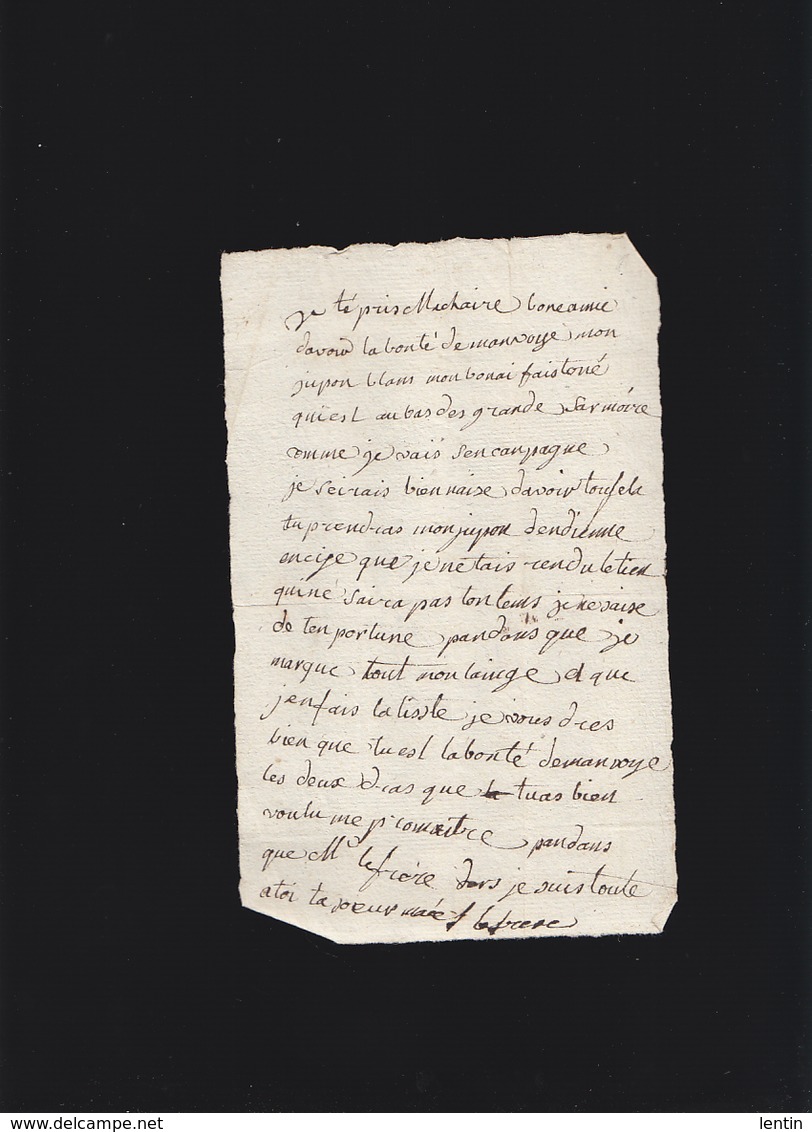 je té pris Machaire boneamie
davoir la bonté demanvoye mon
jupon blans monbonai faistoné
quiest aubas des grande sarmoire
comme je vais sencanpagne
je seirais biennaise davoir
tuprendras monjupon dendienne
que jenetais rendu letien
quiné saira pas tontems
de tenportune pandans que je
marque tout monlainge et que
jenfais laliste je vous dres
bien que tuest labonté demanvoye
les deux dras que tuas bien
voulu me promaitre pandans
que Mr lefrére dors je suis toute
atoi ta soeur
www.delcampe.net
lentin